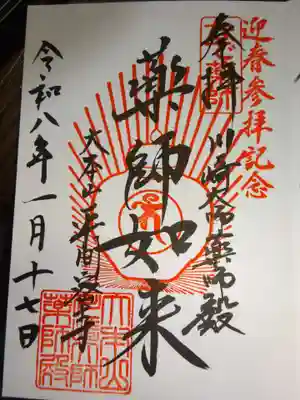 迎春参拝記念
奉拝
川崎大師薬師殿
薬師如来
大本山平間寺
令和八年一月十七日
大本山
薬師殿